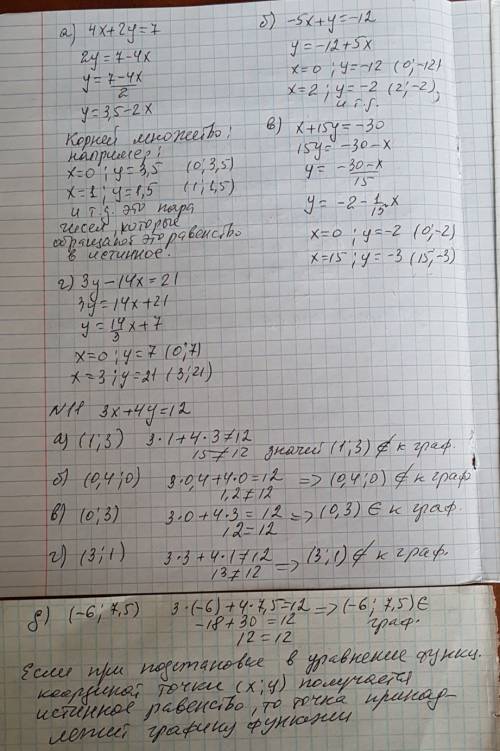 а) 4x+2y=7
2y=7-4x
y=7-4x/2
y=3,5-2x
Корней множество;
например:
x=0; y=3,5 (0;3,5)
x=1; y=1,5 (1;1,5)
и т.д. это пара
чисел, которые
обращают это равенство
в истинное.
б) -5x+y=-12
y=-12+5x
x=0; y=-12 (0;-12)
x=2; y=-2 (2;-2),
и т.д.
в) x+15y=-30
15y=-30-x
y=-30-x/15
y=-2-1/15 x
x=0; y=-2 (0;-2)
x=15; y=-3 (15;-3)
г) 3y-14x=21
3y=14x+21
y=14/3 x+7
x=0; y=7 (0;7)
x=3; y=21 (3;21)
№11 3x+4y=12
а) (1;3) 3·1+4·3≠12
15≠12 значит (1;3) ∉ к граф.
б) (0,4;0) 3·0,4+4·0=12 => (0,4;0) ∉ к граф
1,2≠12
в) (0;3) 3·0+4·3=12 => (0,3) ∈ к граф.
12=12
г) (3;1) 3·3+4·1≠12 => (3;1) ∉ к граф.
13≠12
д) (-6;7,5) 3·(-6)+4·7,5=12 => (-6;7,5) ∈
-18+30=12 граф.
12=12
Если при подстановке в уравнение функц.
координат точки (x;y) получается
истинное равенство, то точка принад-
лежит графику функции